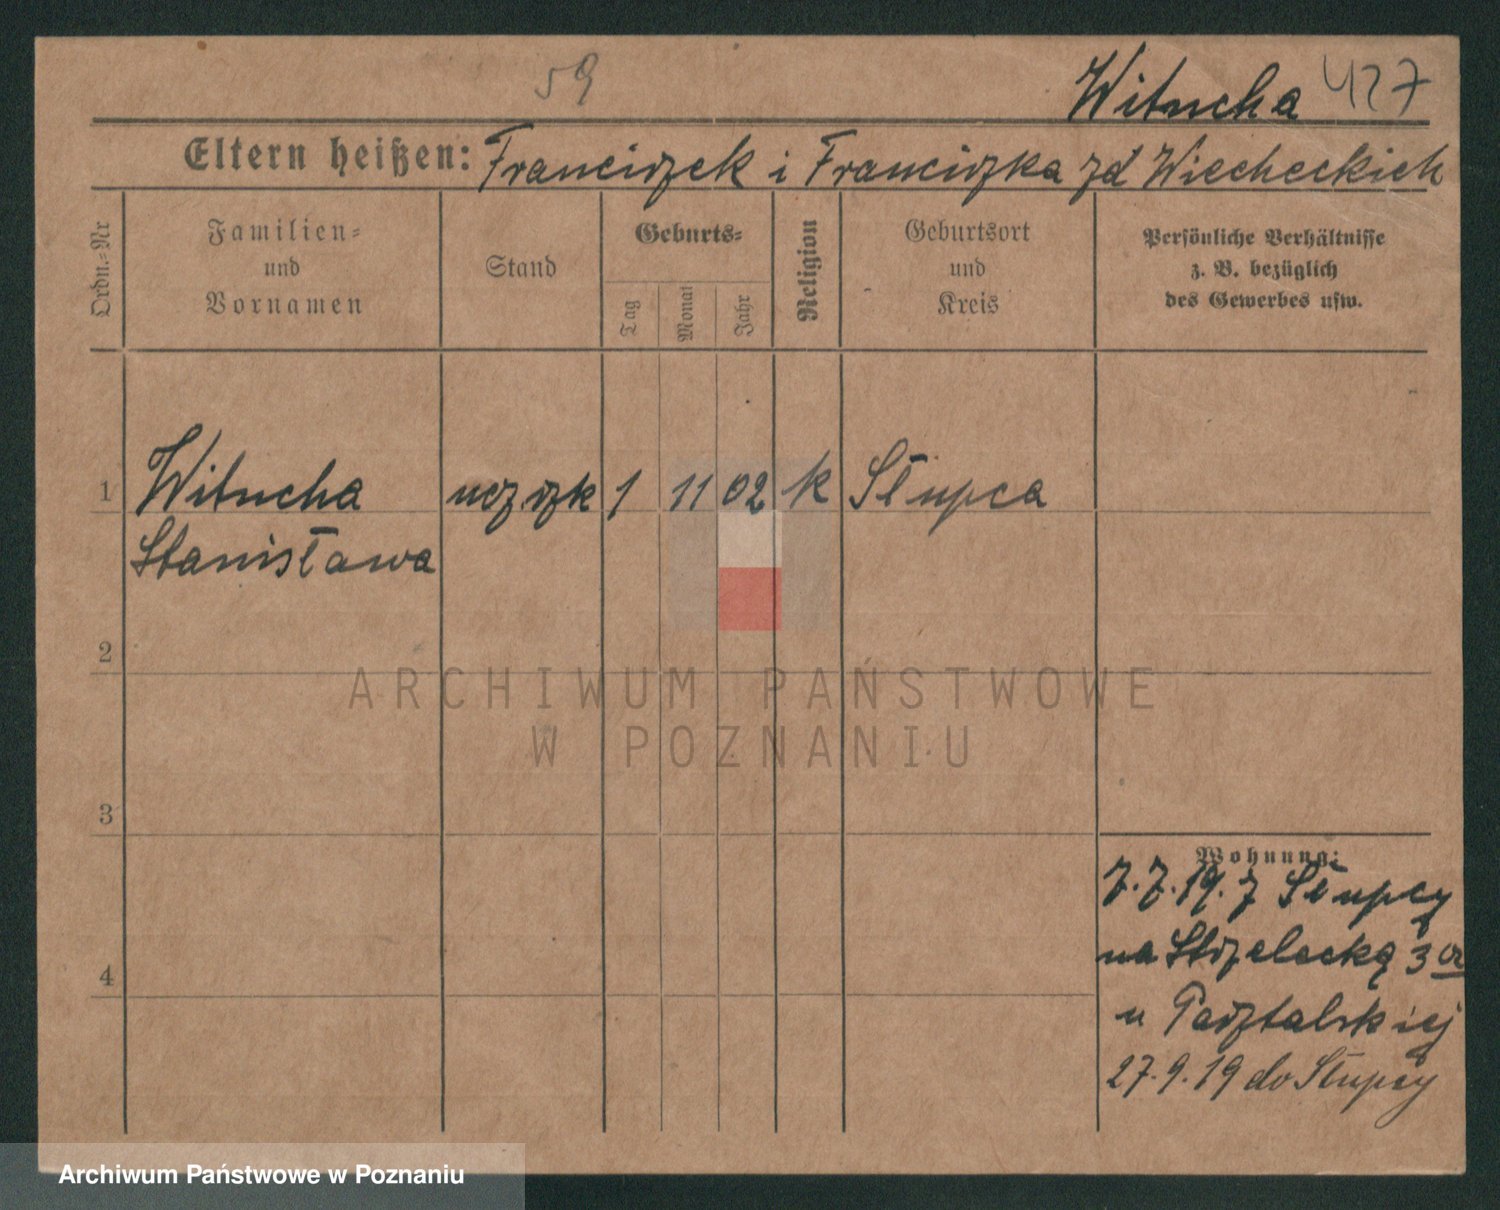 59
Witucha 427
Eltern heißen: Franciszek i Franciszka zd Wiecheckich
Ordn.-Nr
Familien-
und
Vornamen
Stand
Geburts-
Tag
Monat
Jahr
Religion
Geburtsort
und
Kreis
Persönliche Verhältnisse
z. B. bezüglich
des Gewerbes usw.
1 Witucha uczszk 1 11 02 k Słupca
Stanisława
2
3
4
Wohnung:
7.7.19. z Słupcy
na Strzelecką 3
u Pasztalskiej
27.9.19 do Słupcy
ARCHIWUM PAŃSTWOWE
W POZNANIU
Archiwum Państwowe w Poznaniu